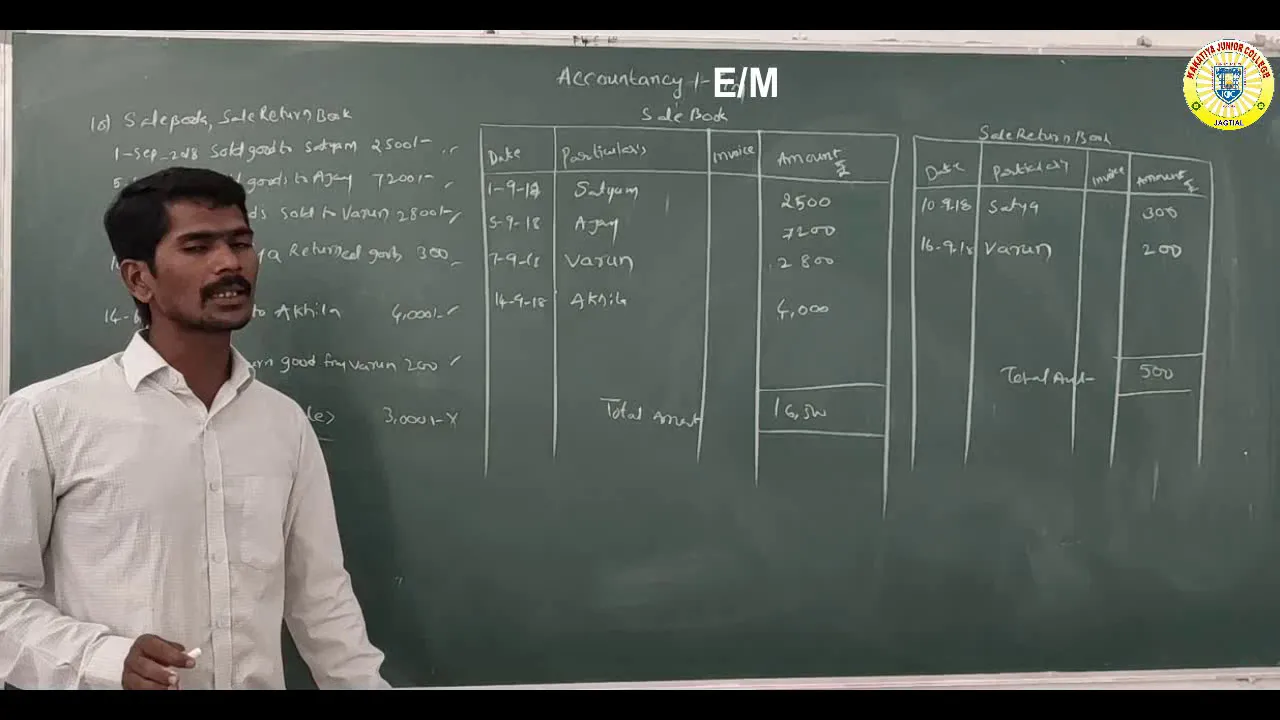 Accountancy 1- E/M
KAKATIYA JUNIOR COLLEGE
KJC
JAGTIAL
10) Sale Book, Sale Return Book
1-Sep-2018 Sold good to Satyam 2500/-
5- goods to Ajay 7200/-
ds sold to Varun 2800/-
ya Returned goods 300
14- to Akhila 4,000/-
urn good from Varun 200
le) 3,000/- X
Sale Book
Date Particulars Invoice Amount
1-9-18 Satyam 2500
5-9-18 Ajay 7200
7-9-18 Varun 2800
14-9-18 Akhila 4,000
Total Amount 16,500
Sale Return Book
Date Particulars Invoice Amount
10-9-18 Satya 300
16-9-18 Varun 200
Total Amt 500